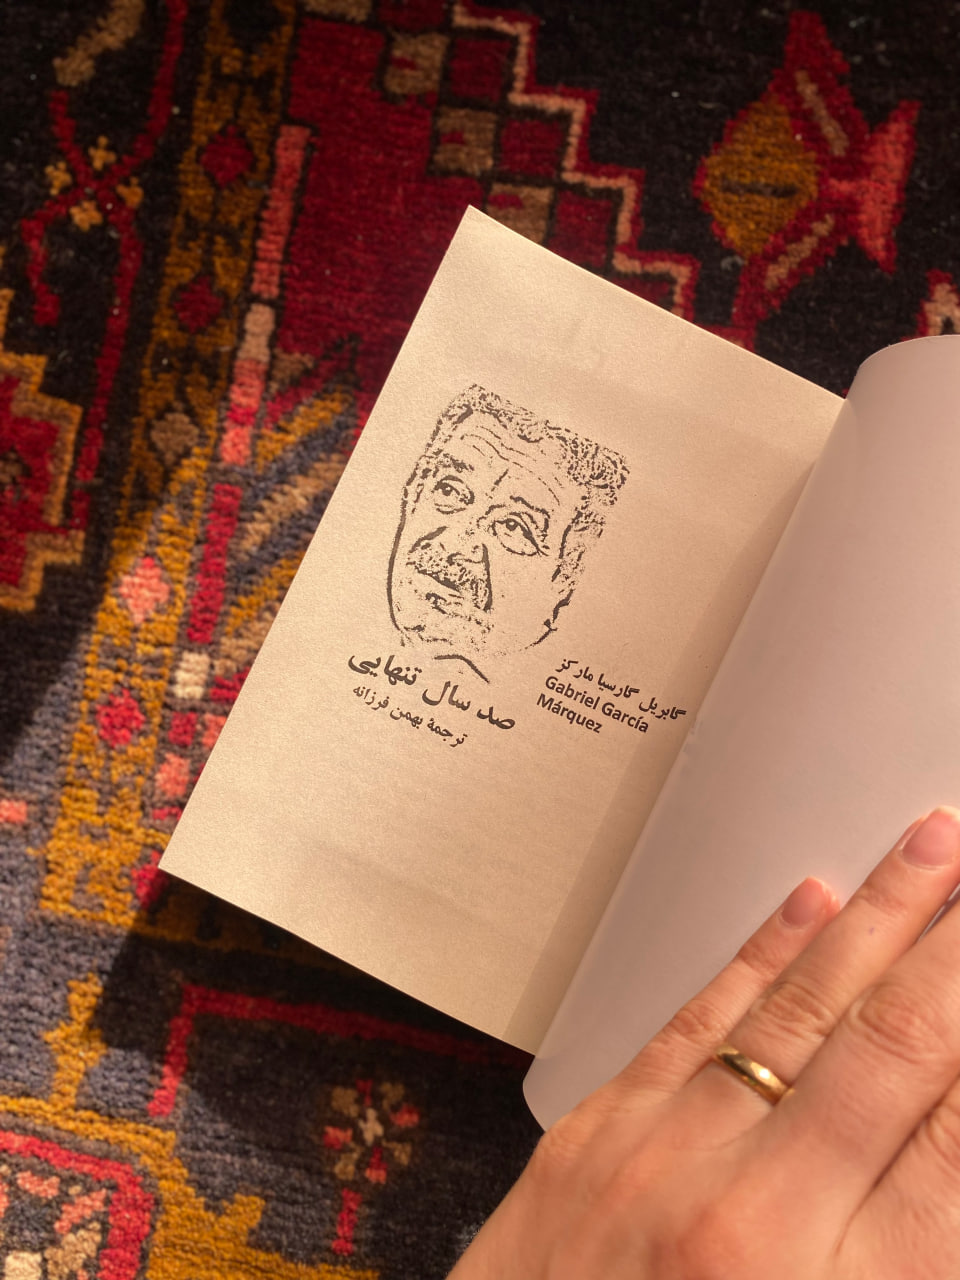 صد سال تنهایی
ترجمهٔ بهمن فرزانه
گابریل گارسیا مارکز
Gabriel García
Márquez